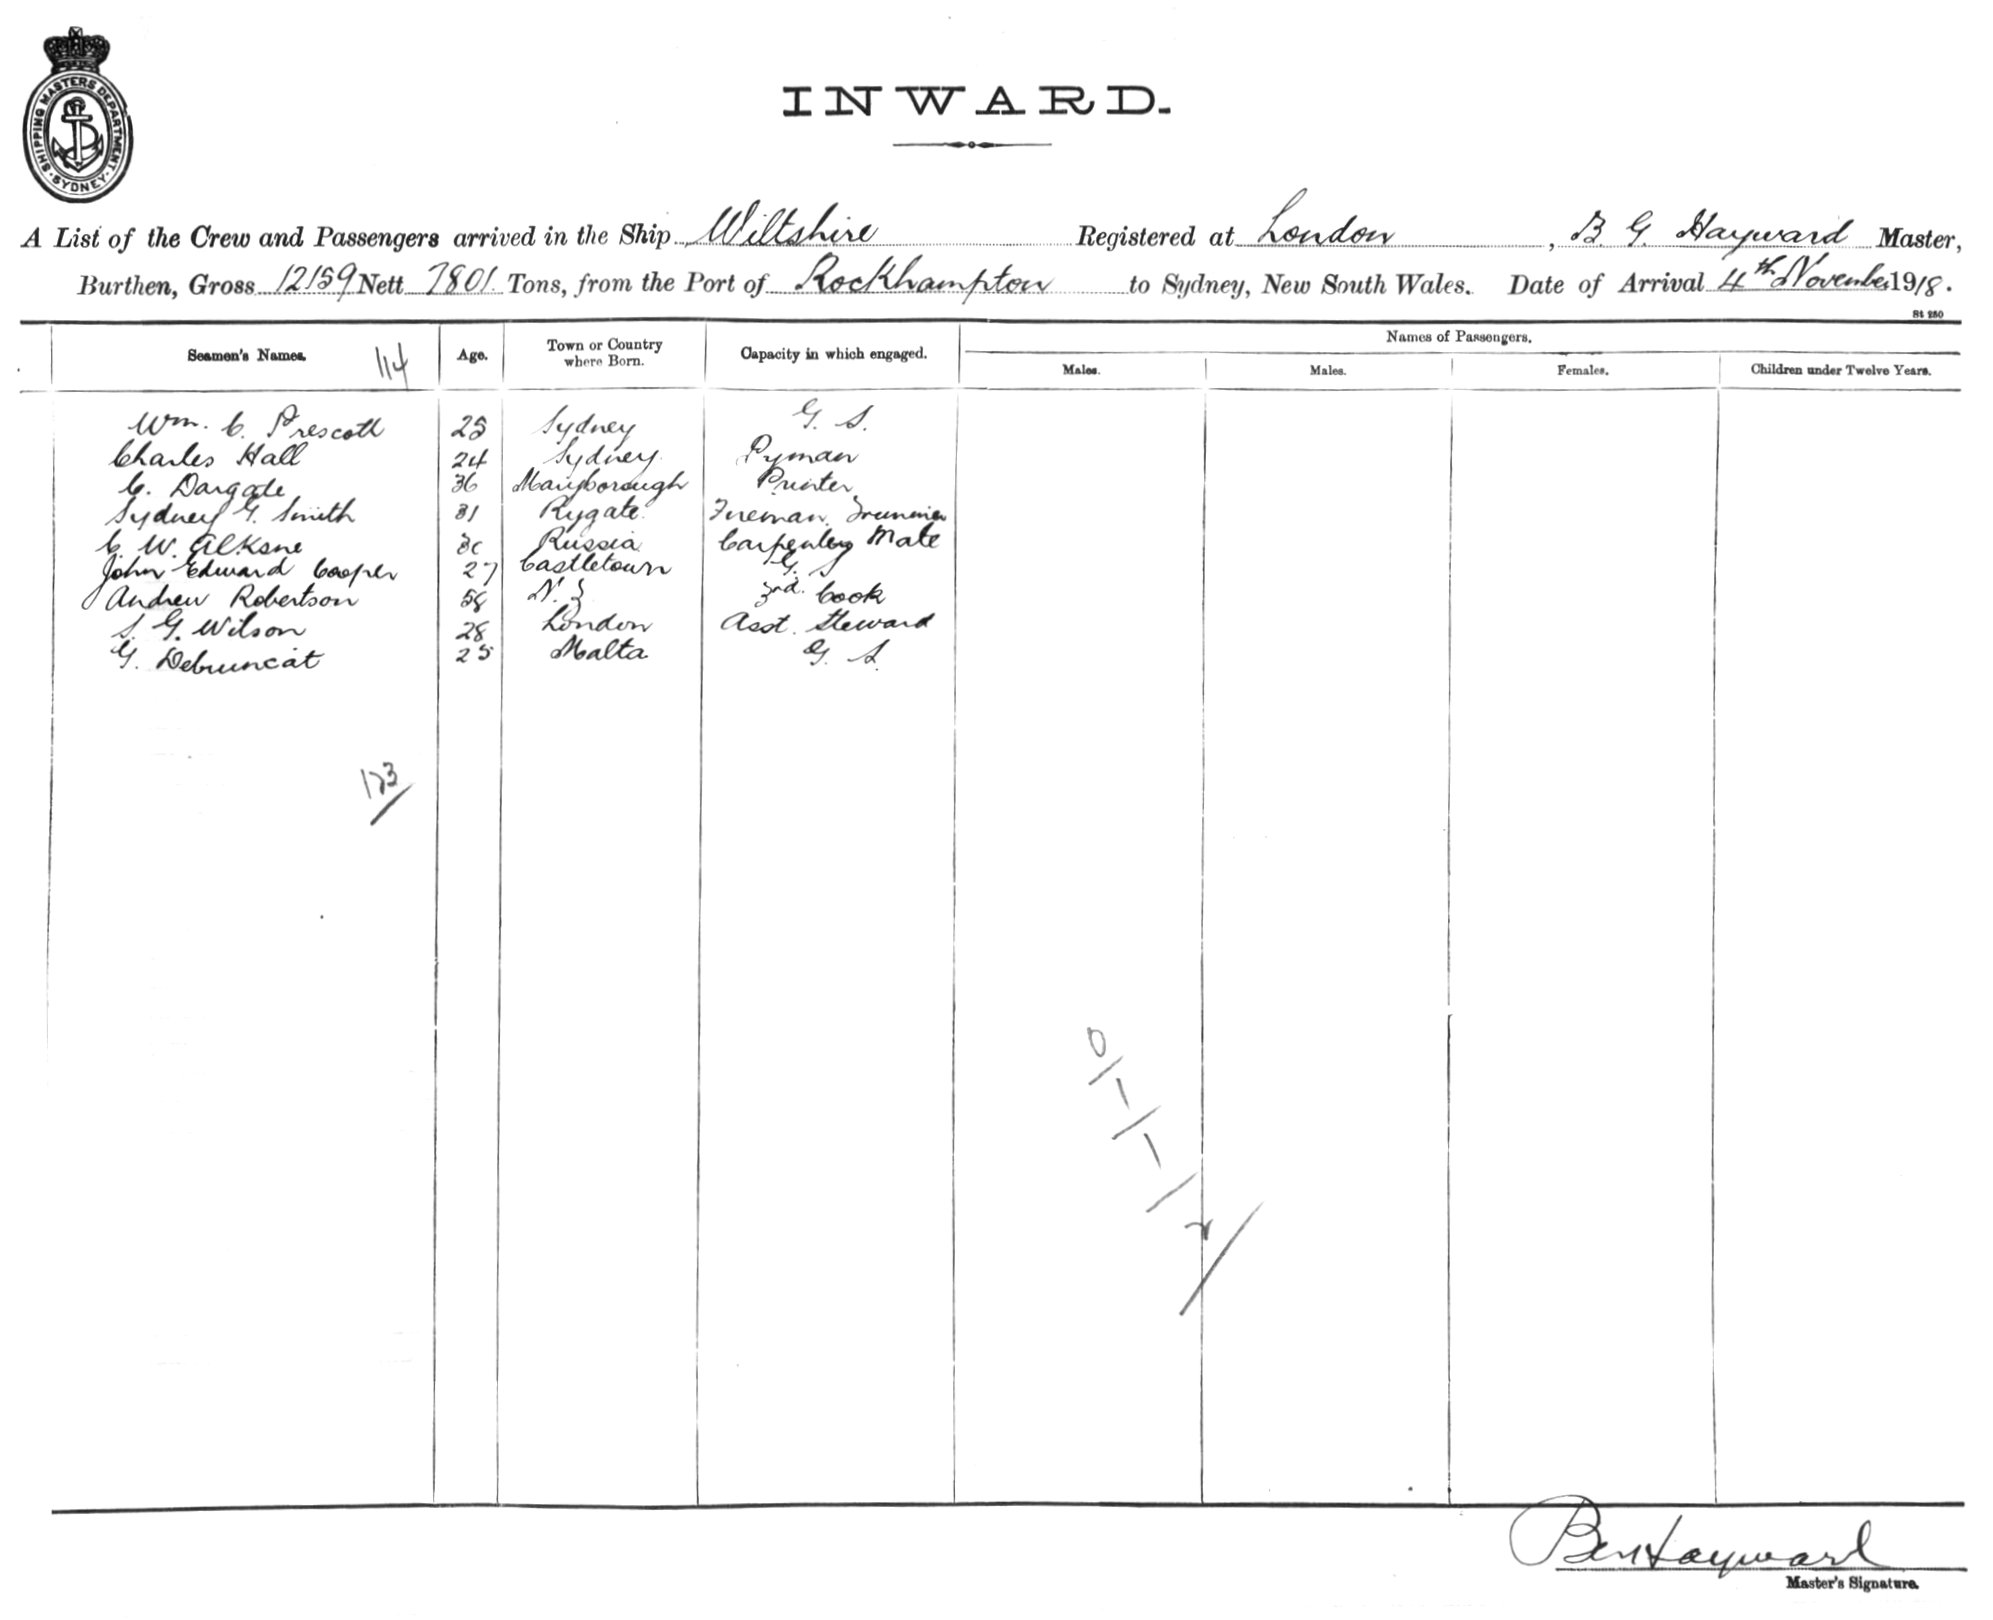 SHIPPING MASTERS DEPARTMENT · SYDNEY ·
INWARD.
A List of the Crew and Passengers arrived in the Ship Wiltshire Registered at London, B. G. Hayward Master,
Burthen, Gross 12159 Nett 7801 Tons, from the Port of Rockhampton to Sydney, New South Wales. Date of Arrival 4th November 1918.
St 280
Seamen's Names. 114 Age. Town or Country where Born. Capacity in which engaged. Names of Passengers.
Males. Males. Females. Children under Twelve Years.
Wm. C. Prescott 25 Sydney G. S.
Charles Hall 24 Sydney. Pyman
C. Dargate 36 Maryborough Printer
Sydney G. Smith 31 Rygate. Fireman Trimmer
C. W. Alksne 30 Russia Carpenters Mate
John Edward Cooper 27 Castletown G. S
Andrew Robertson 58 N. Z 3rd. Cook
S. G. Wilson 28 London Asst. Steward
G. Debruncat 25 Malta G. S.
123
0/1/1/2/
Ben Hayward
Master's Signature.